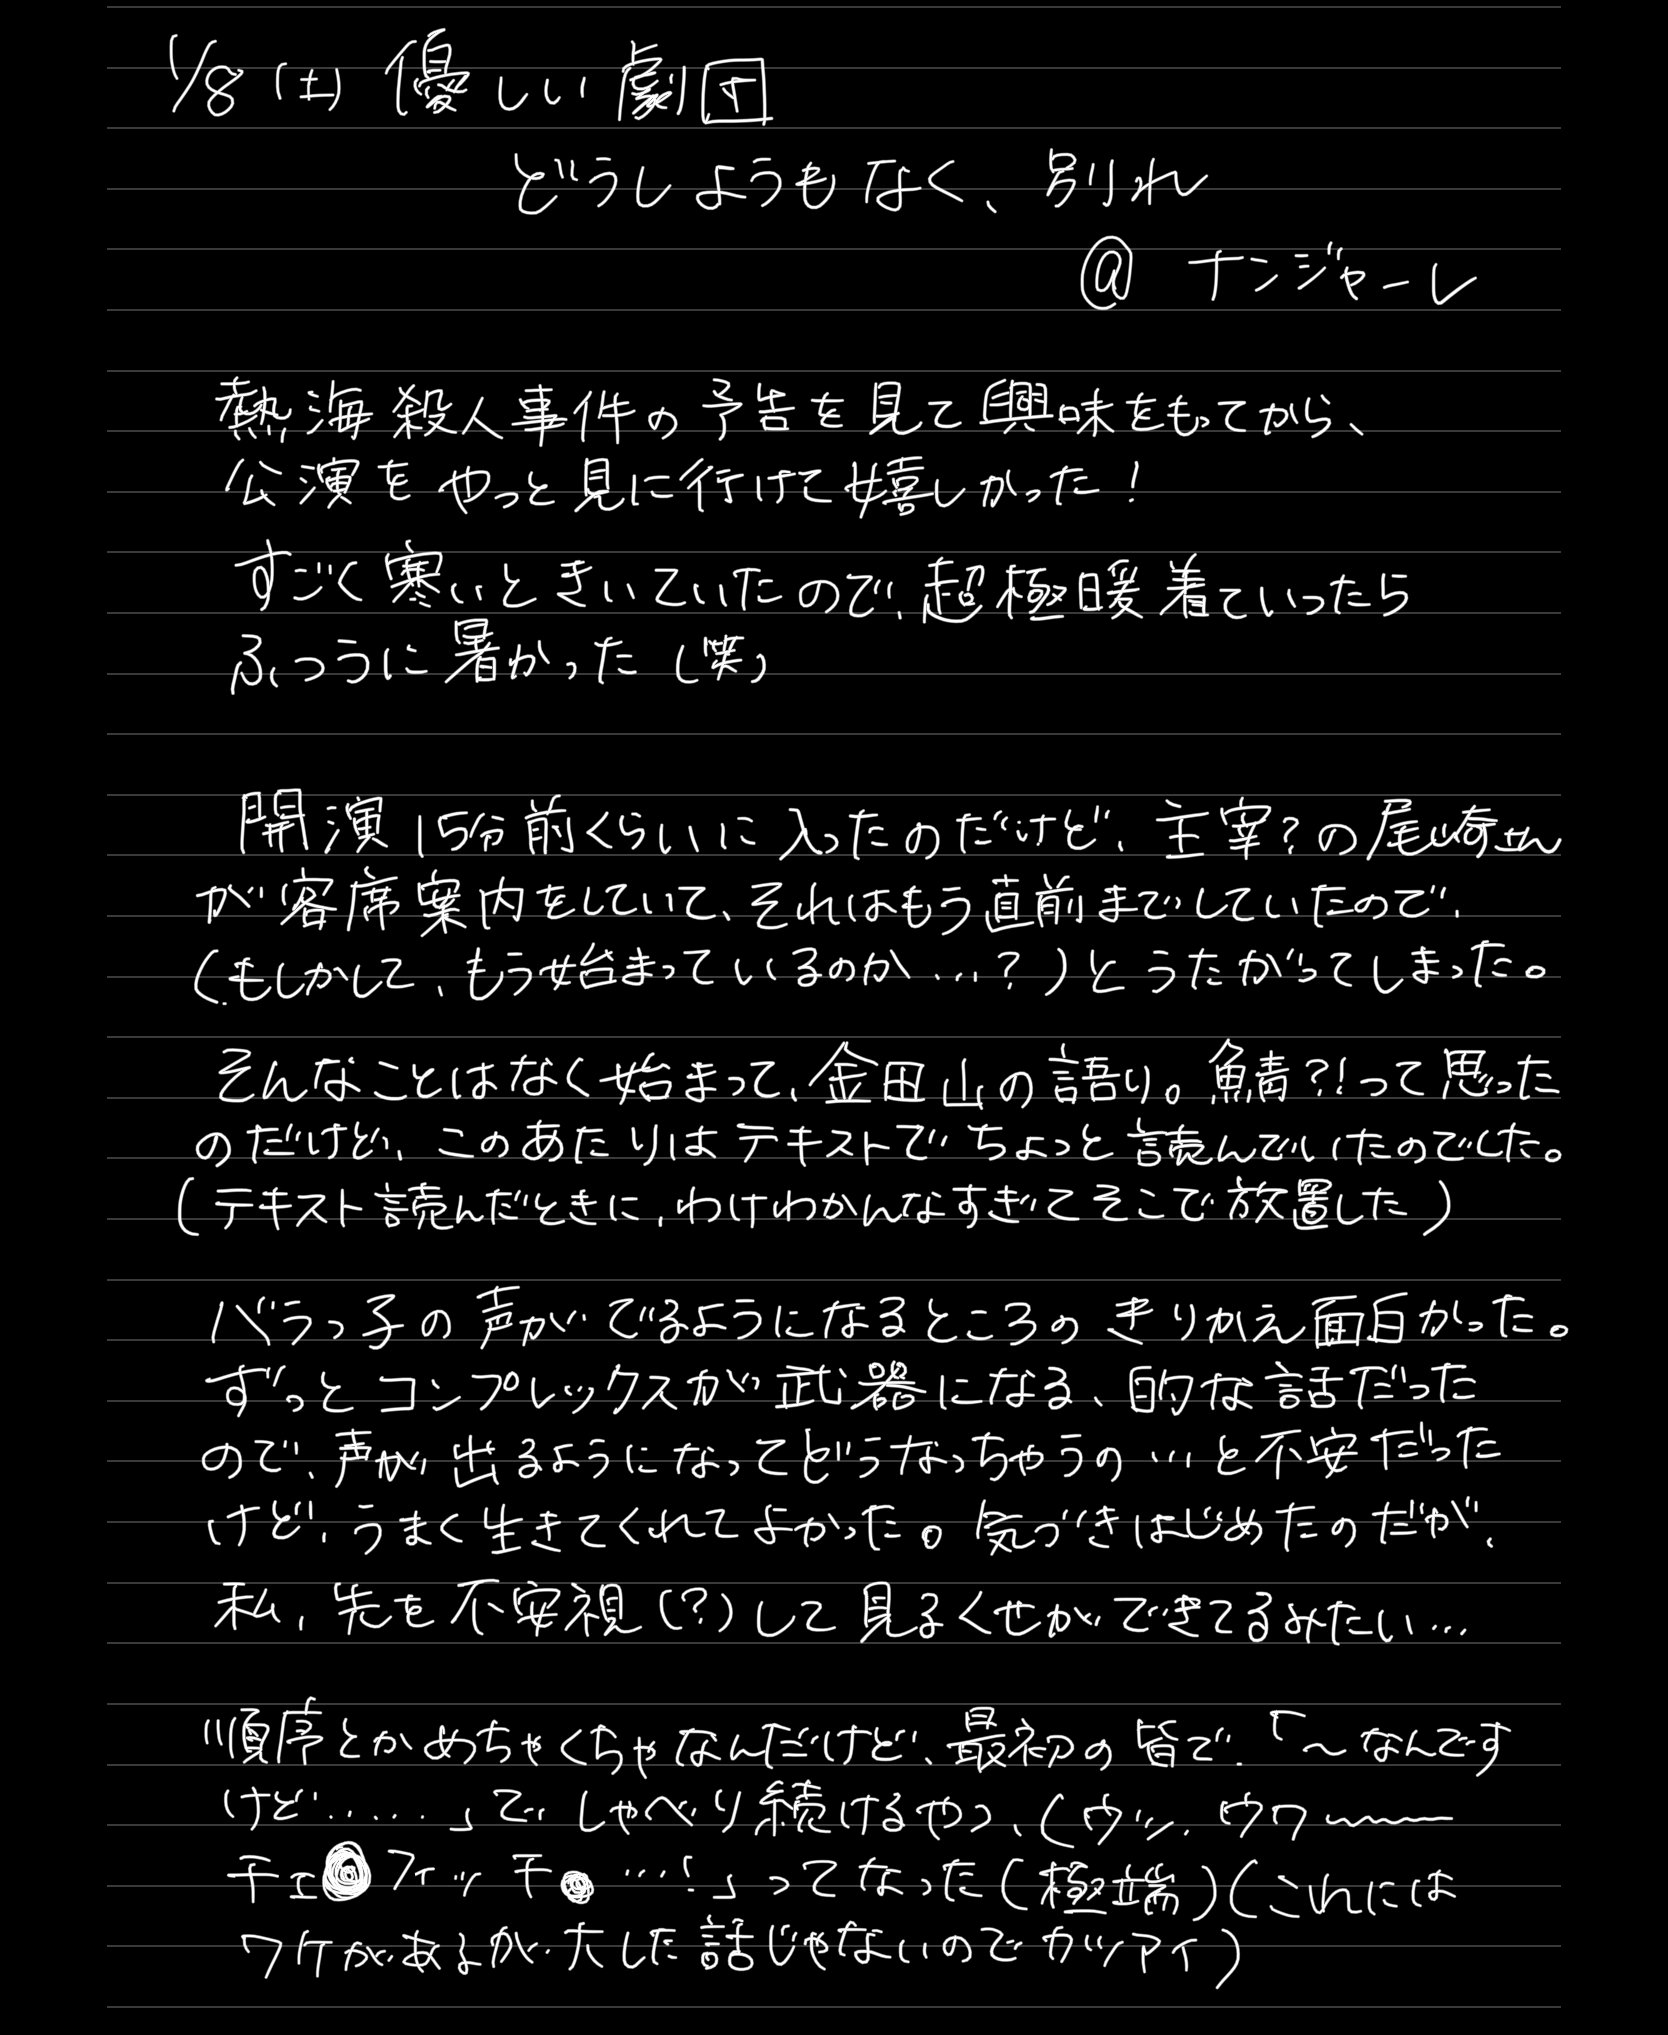 1/8(土) 優しい劇団
どうしようもなく、別れ
@ ナンジャーレ
熱海殺人事件の予告を見て興味をもってから、
公演をやっと見に行けて嬉しかった!
すごく寒いときいていたので、超極暖着ていったら
ふつうに暑かった(笑)
開演15分前くらいに入ったのだけど、主宰?の尾崎さん
が客席案内をしていて、それはもう直前までしていたので、
(もしかして、もう始まっているのか…?)とうたがってしまった。
そんなことはなく始まって、金田山の語り。鯖?!って思った
のだけど、このあたりはテキストでちょっと読んでいたのでした。
(テキスト読んだときに、わけわかんなすぎてそこで放置した)
バラっ子の声がでるようになるところのきりかえ面白かった。
ずっとコンプレックスが武器になる、的な話だった
ので、声が出るようになってどうなっちゃうの…と不安だった
けど、うまく生きてくれてよかった。気づきはじめたのだが、
私、先を不安視(?)して見るくせができてるみたい…
順序とかめちゃくちゃなんだけど、最初の皆で、「〜なんです
けど……」でしゃべり続けるやつ、(ウッ、ウワ〜〜〜
チェ フィッチ …!」ってなった(極端)(これには
ワケがあるが、大した話じゃないのでカツアイ)